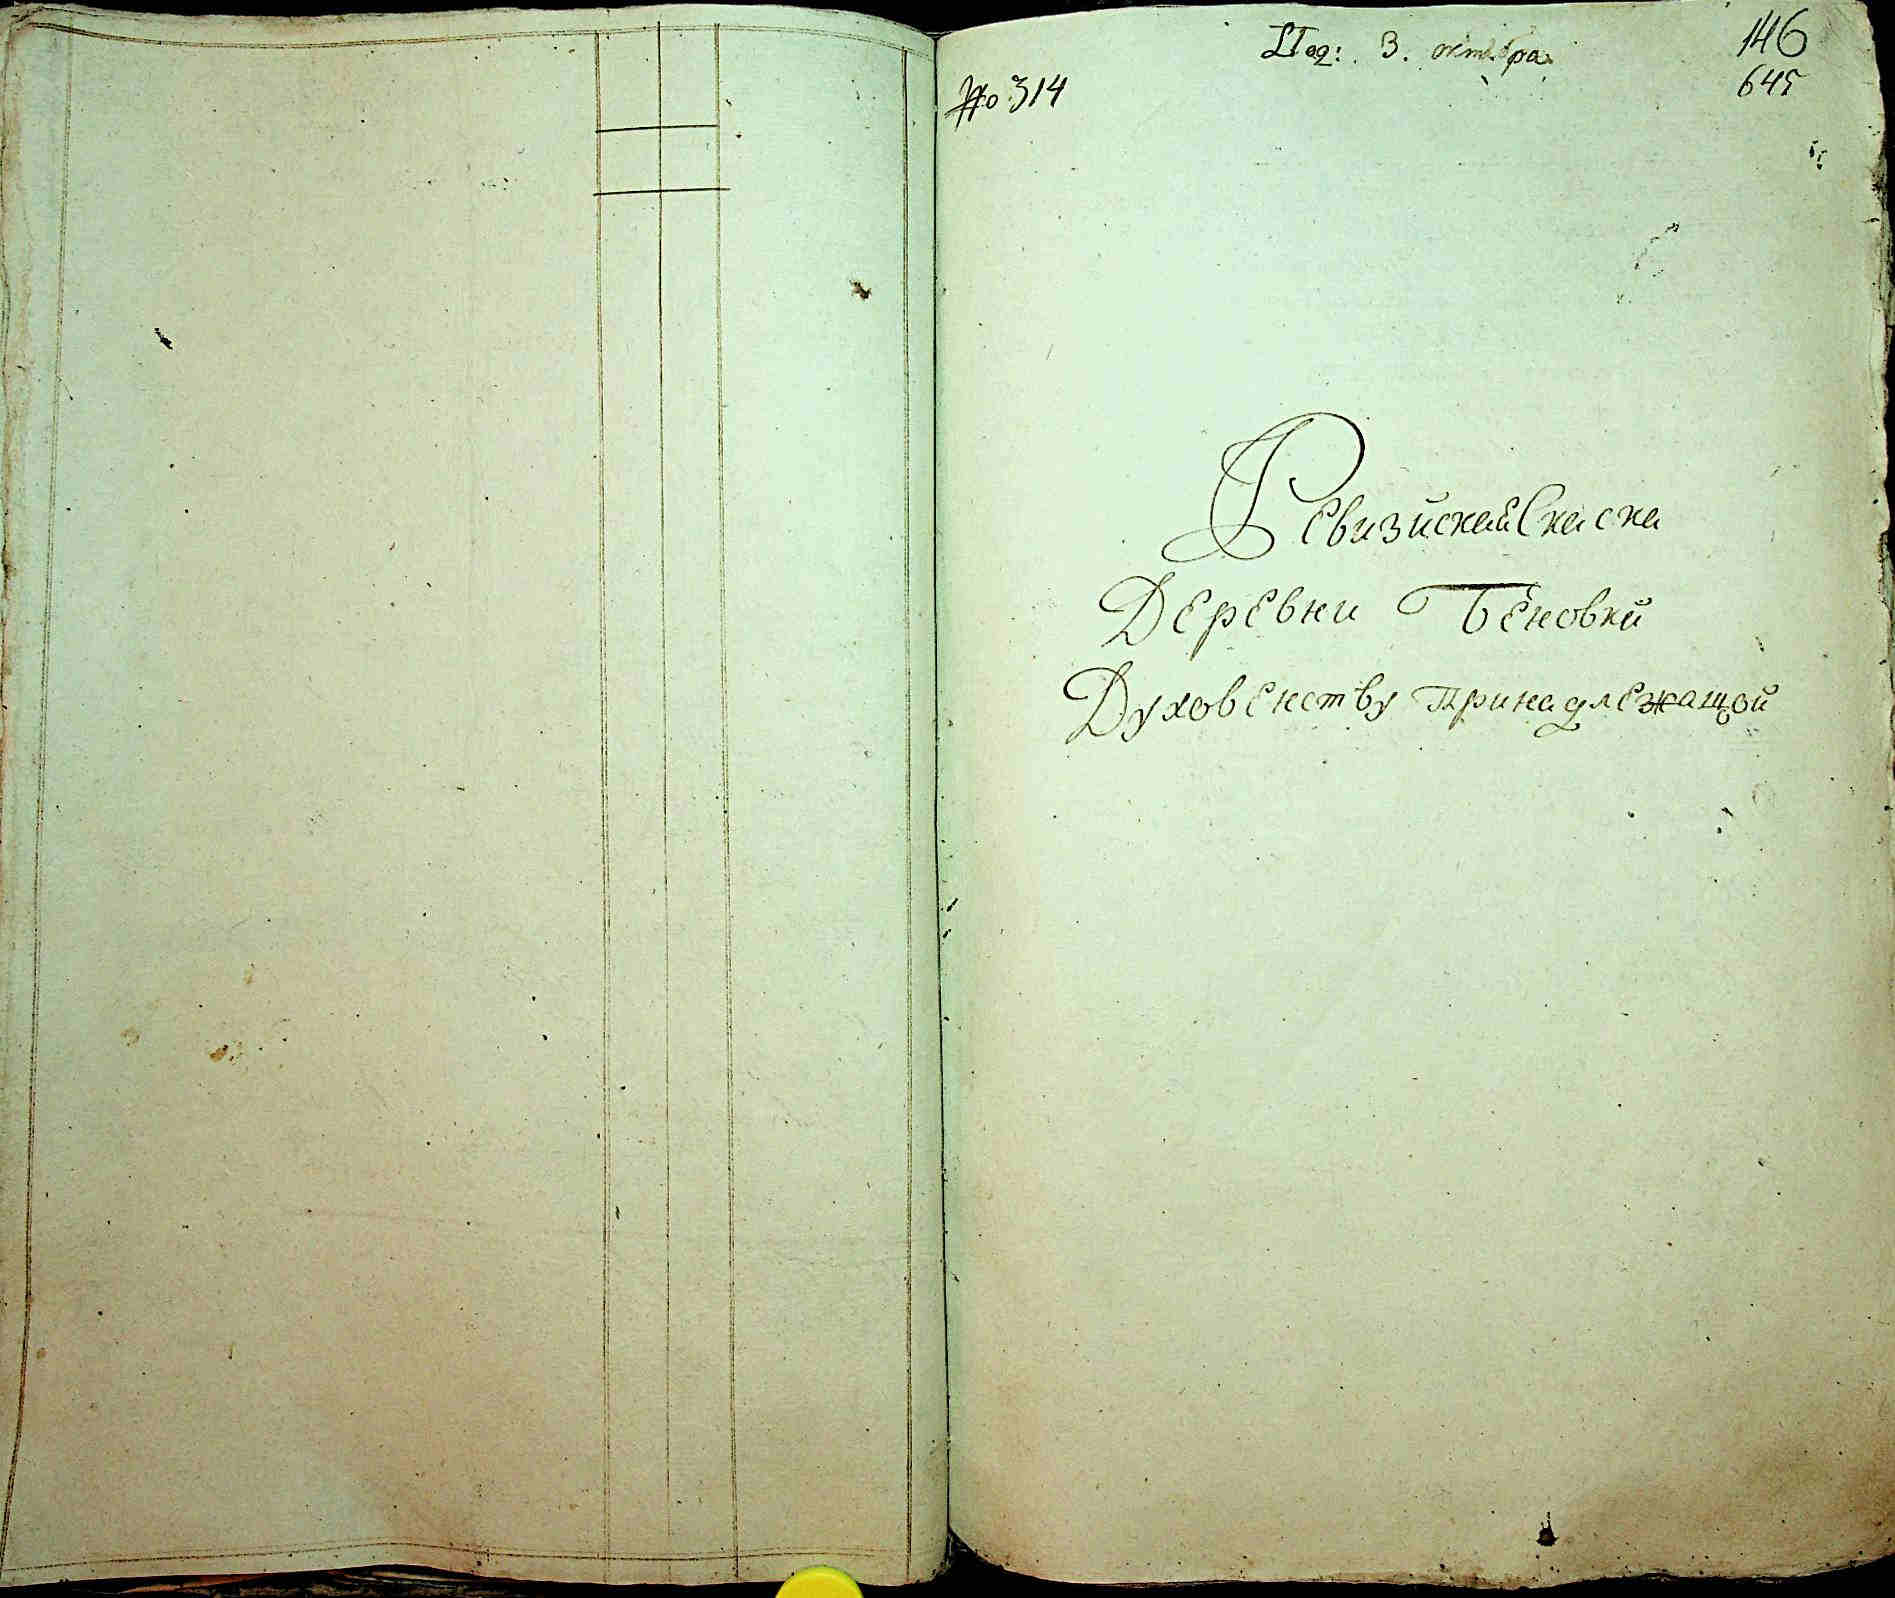 Под: 3. октебра.
146
645
No 314
Ревизйская Скаска
Деревни Беновки
Духовенству принадлежащой